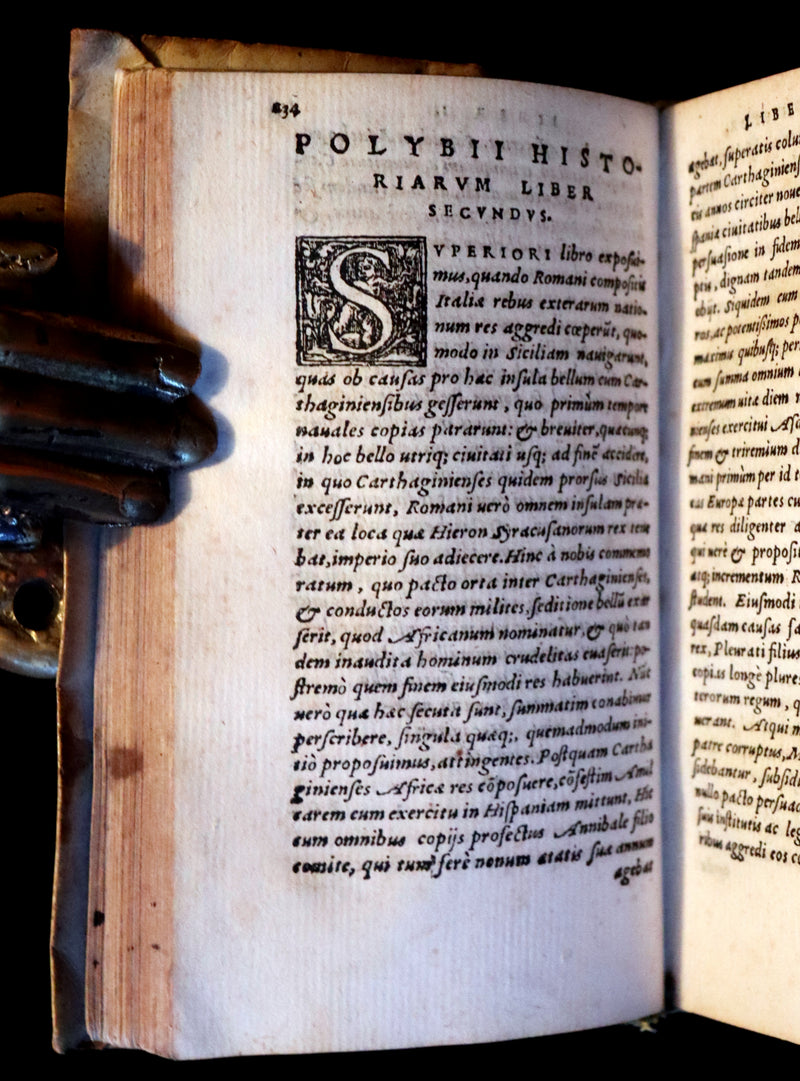 834
POLYBII HISTO-
RIARVM LIBER
SECVNDVS.
SVPERIORI libro exposui-
mus, quando Romani compositis
Italiæ rebus exterarum natio-
num res aggredi cœperũt, quo-
modo in Siciliam nauigarunt,
quas ob causas pro hac insula bellum cum Car-
thaginiensibus gesserunt, quo primùm tempore
nauales copias pararunt: & breuiter, quæcunq;
in hoc bello utriq; ciuitati usq; ad finẽ accidere,
in quo Carthaginienses quidem prorsus Sicilia
excesserunt, Romani uerò omnem insulam præ-
ter ea loca quæ Hieron Syracusanorum rex tene
bat, imperio suo adiecere. Hinc à nobis commemo
ratum, quo pacto orta inter Carthaginienses,
& conductos eorum milites, seditione bellũ exar
serit, quod Africanum nominatur, & quò tan
dem inaudita hominum crudelitas euaserit: po-
stremò quem finem eiusmodi res habuerint. Nũc
uerò quæ hæc secuta sunt, summatim conabimur
perscribere, singula quæq;, quemadmodum ini-
tiò proposuimus, attingentes. Postquam Cartha
ginienses Africæ res cõposuere, cõfestim Amil
carem cum exercitu in Hispaniam mittunt, Hic
cum omnibus copijs profectus Annibale filio
comite, qui tum ferè nonum ætatis suæ annum
agebat
LIBE
agebat, superatis colu
partem Carthaginiens
tis annos circiter noue
spania ciuitatibus bel
persuasione in fidem
ptu, dignam tandem
obijt. Siquidem cum
ros, ac potentissimos p
maxima quibusq; per
cum summa omnium
extremum uitæ diem
nienses exercitui Asd
finem & triremium d
mani primùm per id t
eas Europæ partes cu
quæ res diligenter
qui uerè & proposit
atq; incrementum R
student. Eiusmodi
quasdam causas fa
rex, Pleurati filius
copias longè plures
terorum regum, q
uerant. Atqui
patre corruptus, M
sidebantur, subsidi
nullo pacto persuad
suis institutis ac leg
ribus aggredi eos co